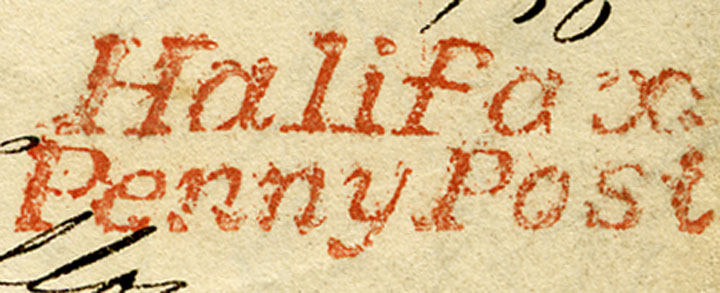 Halifax
Penny Post